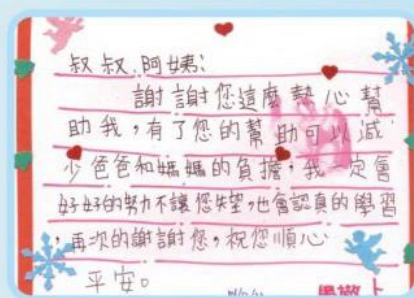 叔叔、阿姨:
謝謝您這麼熱心幫
助我,有了您的幫助可以減
少爸爸和媽媽的負擔,我一定會
好好的努力不讓您失望,也會認真的學習
,再次的謝謝您,祝您順心
平安。
敬上